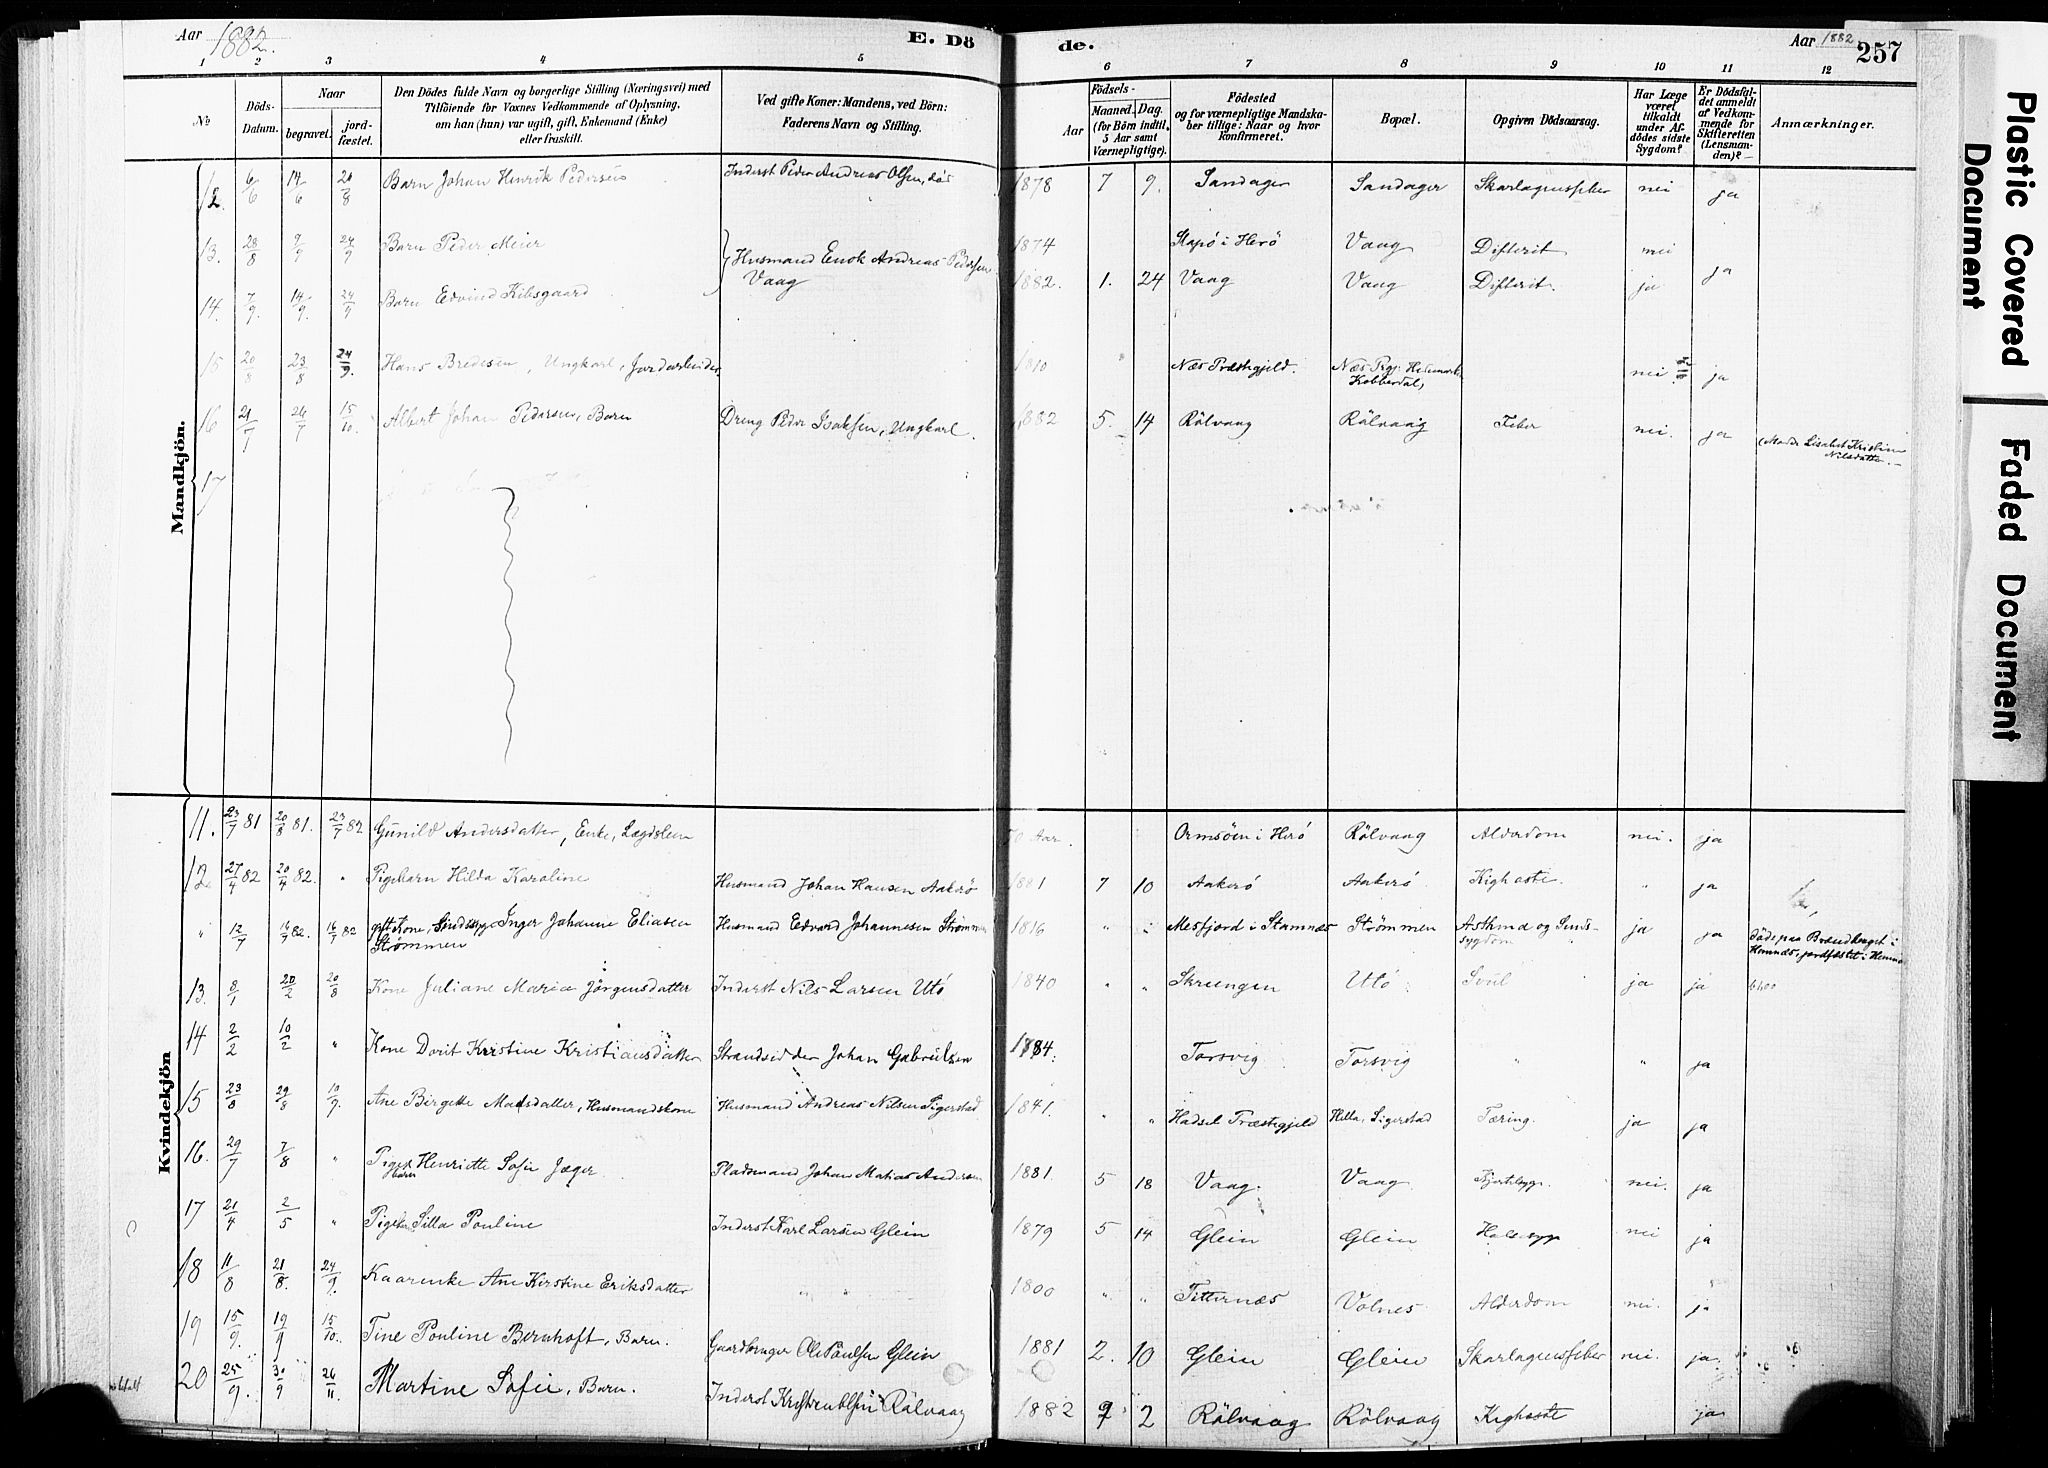 Aar 1882.
E. Dö
de.
Aar 1882
257
1 2 3 4 5 6 7 8 9 10 11 12
No
Döds-Datum.
Naar
begravet.
jord-fæstet.
Den Dödes fulde Navn og borgerlige Stilling (Næringsvei) med
Tilföiende for Voxnes Vedkommende af Oplysning,
om han (hun) var ugift, gift, Enkemand (Enke)
eller fraskilt.
Ved gifte Koner: Mandens, ved Börn:
Faderens Navn og Stilling.
Födsels-
Aar
Maaned. Dag.
(for Börn indtil
5 Aar samt
Værnepligtige).
Födested
og for værnepligtige Mandska-
ber tillige: Naar og hvor
konfirmeret.
Bopæl.
Opgiven Dödsaarsag.
Har Læge
været
tilkaldt
under Af-
dödes sidste
Sygdom?
Er Dödsfal-
det anmeldt
af Vedkom-
mende for
Skifteretten
(Lensman-
den)?
Anmærkninger.
Mandkjön.
12. 6/6 14/6 20/8 Barn Johan Henrik Pedersen Inderst Peder Andreas Olsen, 1878 7 9. Sandager Sandager Skarlagensfeber nei ja
13. 28/8 9/9 24/9 Barn Peder Meier Husmand Enok Andreas Pedersen 1874 Slapö i Herö Vaag Difterit nei
Vaag ja
14. 7/9. 14/9. 24/9 Barn Edvind Kibsgaard 1882. 1. 24 Vaag Vaag Difterit. ja
15 20/8 23/8 24/9. Hans Bredesen, Ungkarl, Jordarbeider, 1810 Næs Præstegjeld. Næs Prgj. Hedemarken
Kobberdal, nei ja
16 21/7 24/7 15/10. Albert Johan Pedersen, Barn Dreng Peder Isaksen, Ungkarl. 1882 5. 14 Rölvaag Rölvaag Feber nei. ja (Moder Lisabet Kristine
Nilsdatter.
17
Kvindekjön
11. 23/7 81 20/8 81. 23/7 82 Gunild Andersdatter, Enke, Lægdslem 70 Aar. Ormsöen i Herö Rölvaag Alderdom nei. ja
12 27/4 82 20/4 82. " Pigebarn Hilda Karoline Husmand Johan Hansen Aakerö 1881 7 10 Aakerö Aakerö Kighoste. " ja
" 12/7 16/7 82. 16/7 82 gift Kone, Sindssyge Inger Johanne Eliasen Husmand Edvard Johannesen Strømmen 1816 " " Mesfjord i Stamnæs Strømmen Asthma og Sinds- ja ja døde paa Brændhauget i
Strømmen sygdom Hemnes, jordfæstet i Hemnes
13. 8/1 20/2 20/8 Kone Juliane Maria Jörgensdatter Inderst Nils Larsen Utö 1840 " " Skreingen Utö Svul ja ja
14 2/2 10/2 " Kone Dorit Kristine Kristiansdatter Strandsidder Johan Gabrielsen 1784. Torsvig Torsvig " " ja
15 23/8 29/8 10/9. Ane Birgitte Madsdatter, Husmandskone Husmand Andreas Nilsen Sigerstad 1841. " " Hadsel Præstegjeld Hilla, Sigerstad Tæring. ja ja
16. 29/7 7/8 " Pigebarn Henriette Sofie Jæger Pladsmand Johan Matias Andersen 1881. 5 18 Vaag. Vaag. nei. ja
17 21/4 2/5 " Pigebarn Silla Pouline Inderst Karl Larsen Glein 1879 5 14 Glein Glein Halssyge nei ja
18 11/8 21/8. 24/9. Kaarenke Ane Kirstine Eriksdatter " " 1800 " " Titternæs Volnes. Alderdom nei. ja
19 15/9. 19/9 15/10. Tine Pouline Bernhoft, Barn. Gaardbruger Ole Paulsen Glein 1881 2. 10 Glein Glein Skarlagensfeber nei. ja.
20 25/9. 30/9 26/11. Martine Sofie, Barn. Inderst Kristen Olsen Rölvaag 1882 7 2 Rölvaag Rölvaag Kighoste ja
Plastic Covered
Document
Faded Document